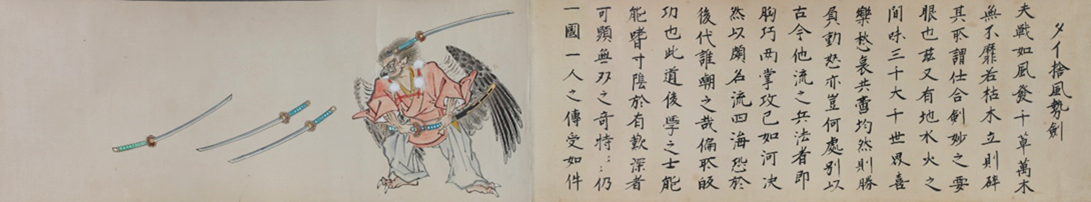 タイ捨風勢劍
夫戰如風發千草萬木
無不靡若枯木立則碎
其所謂仕合劍妙之要
眼也茲又有地水火之
間味三千大千世界喜
樂愁哀共當灼然則勝
負動怒亦豈何處別以
古今他流之兵法者即
胸巧而掌攻已如河決
然以廣名流四海恐於
後代誰嘲之哉偏取皈
功也此道後學之士能
能嗜寸陰於有歎深者
可顕無刄之奇特〻仍
一國一人之傳受如件